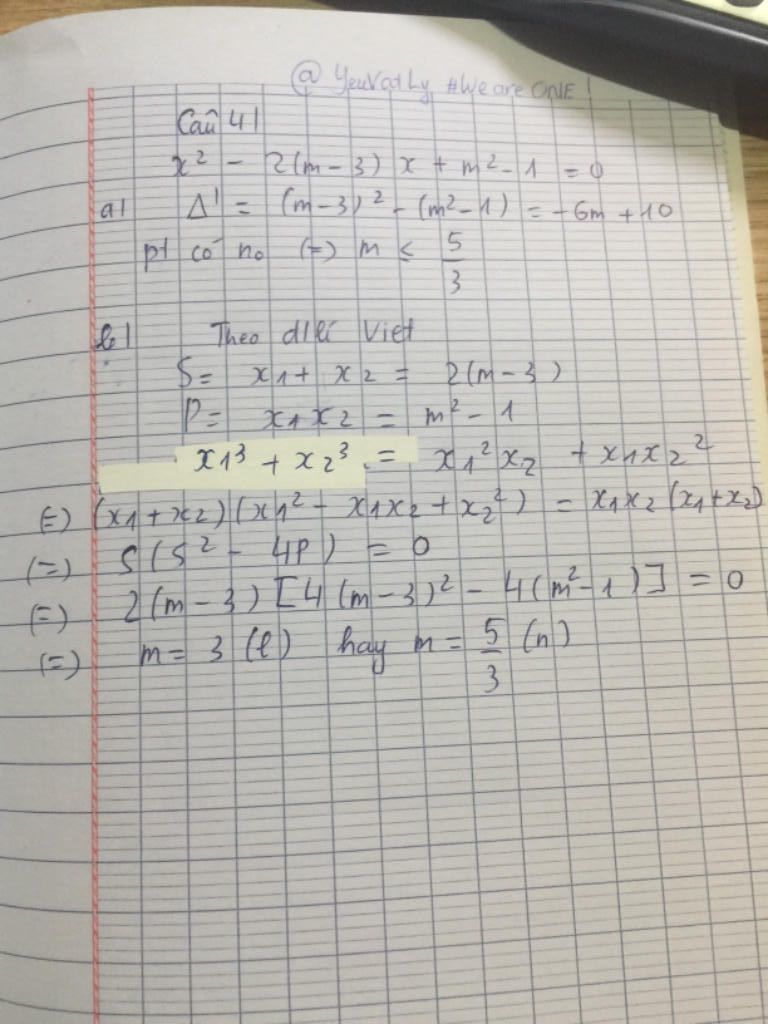 @ YeuVatLy #WeareONE!
Câu 4/
x² - 2(m-3)x + m² - 1 = 0
a/ Δ' = (m-3)² - (m²-1) = -6m + 10
pt có no (=) m ≤ 5/3
b/ Theo đ/lí Viet
S= x₁ + x₂ = 2(m-3)
P= x₁x₂ = m² - 1
x₁³ + x₂³ = x₁²x₂ + x₁x₂²
(=) (x₁+x₂)(x₁² - x₁x₂ + x₂²) = x₁x₂(x₁+x₂)
(=) S(S² - 4P) = 0
(=) 2(m-3)[4(m-3)² - 4(m²-1)] = 0
(=) m = 3 (l) hay m = 5/3 (n)